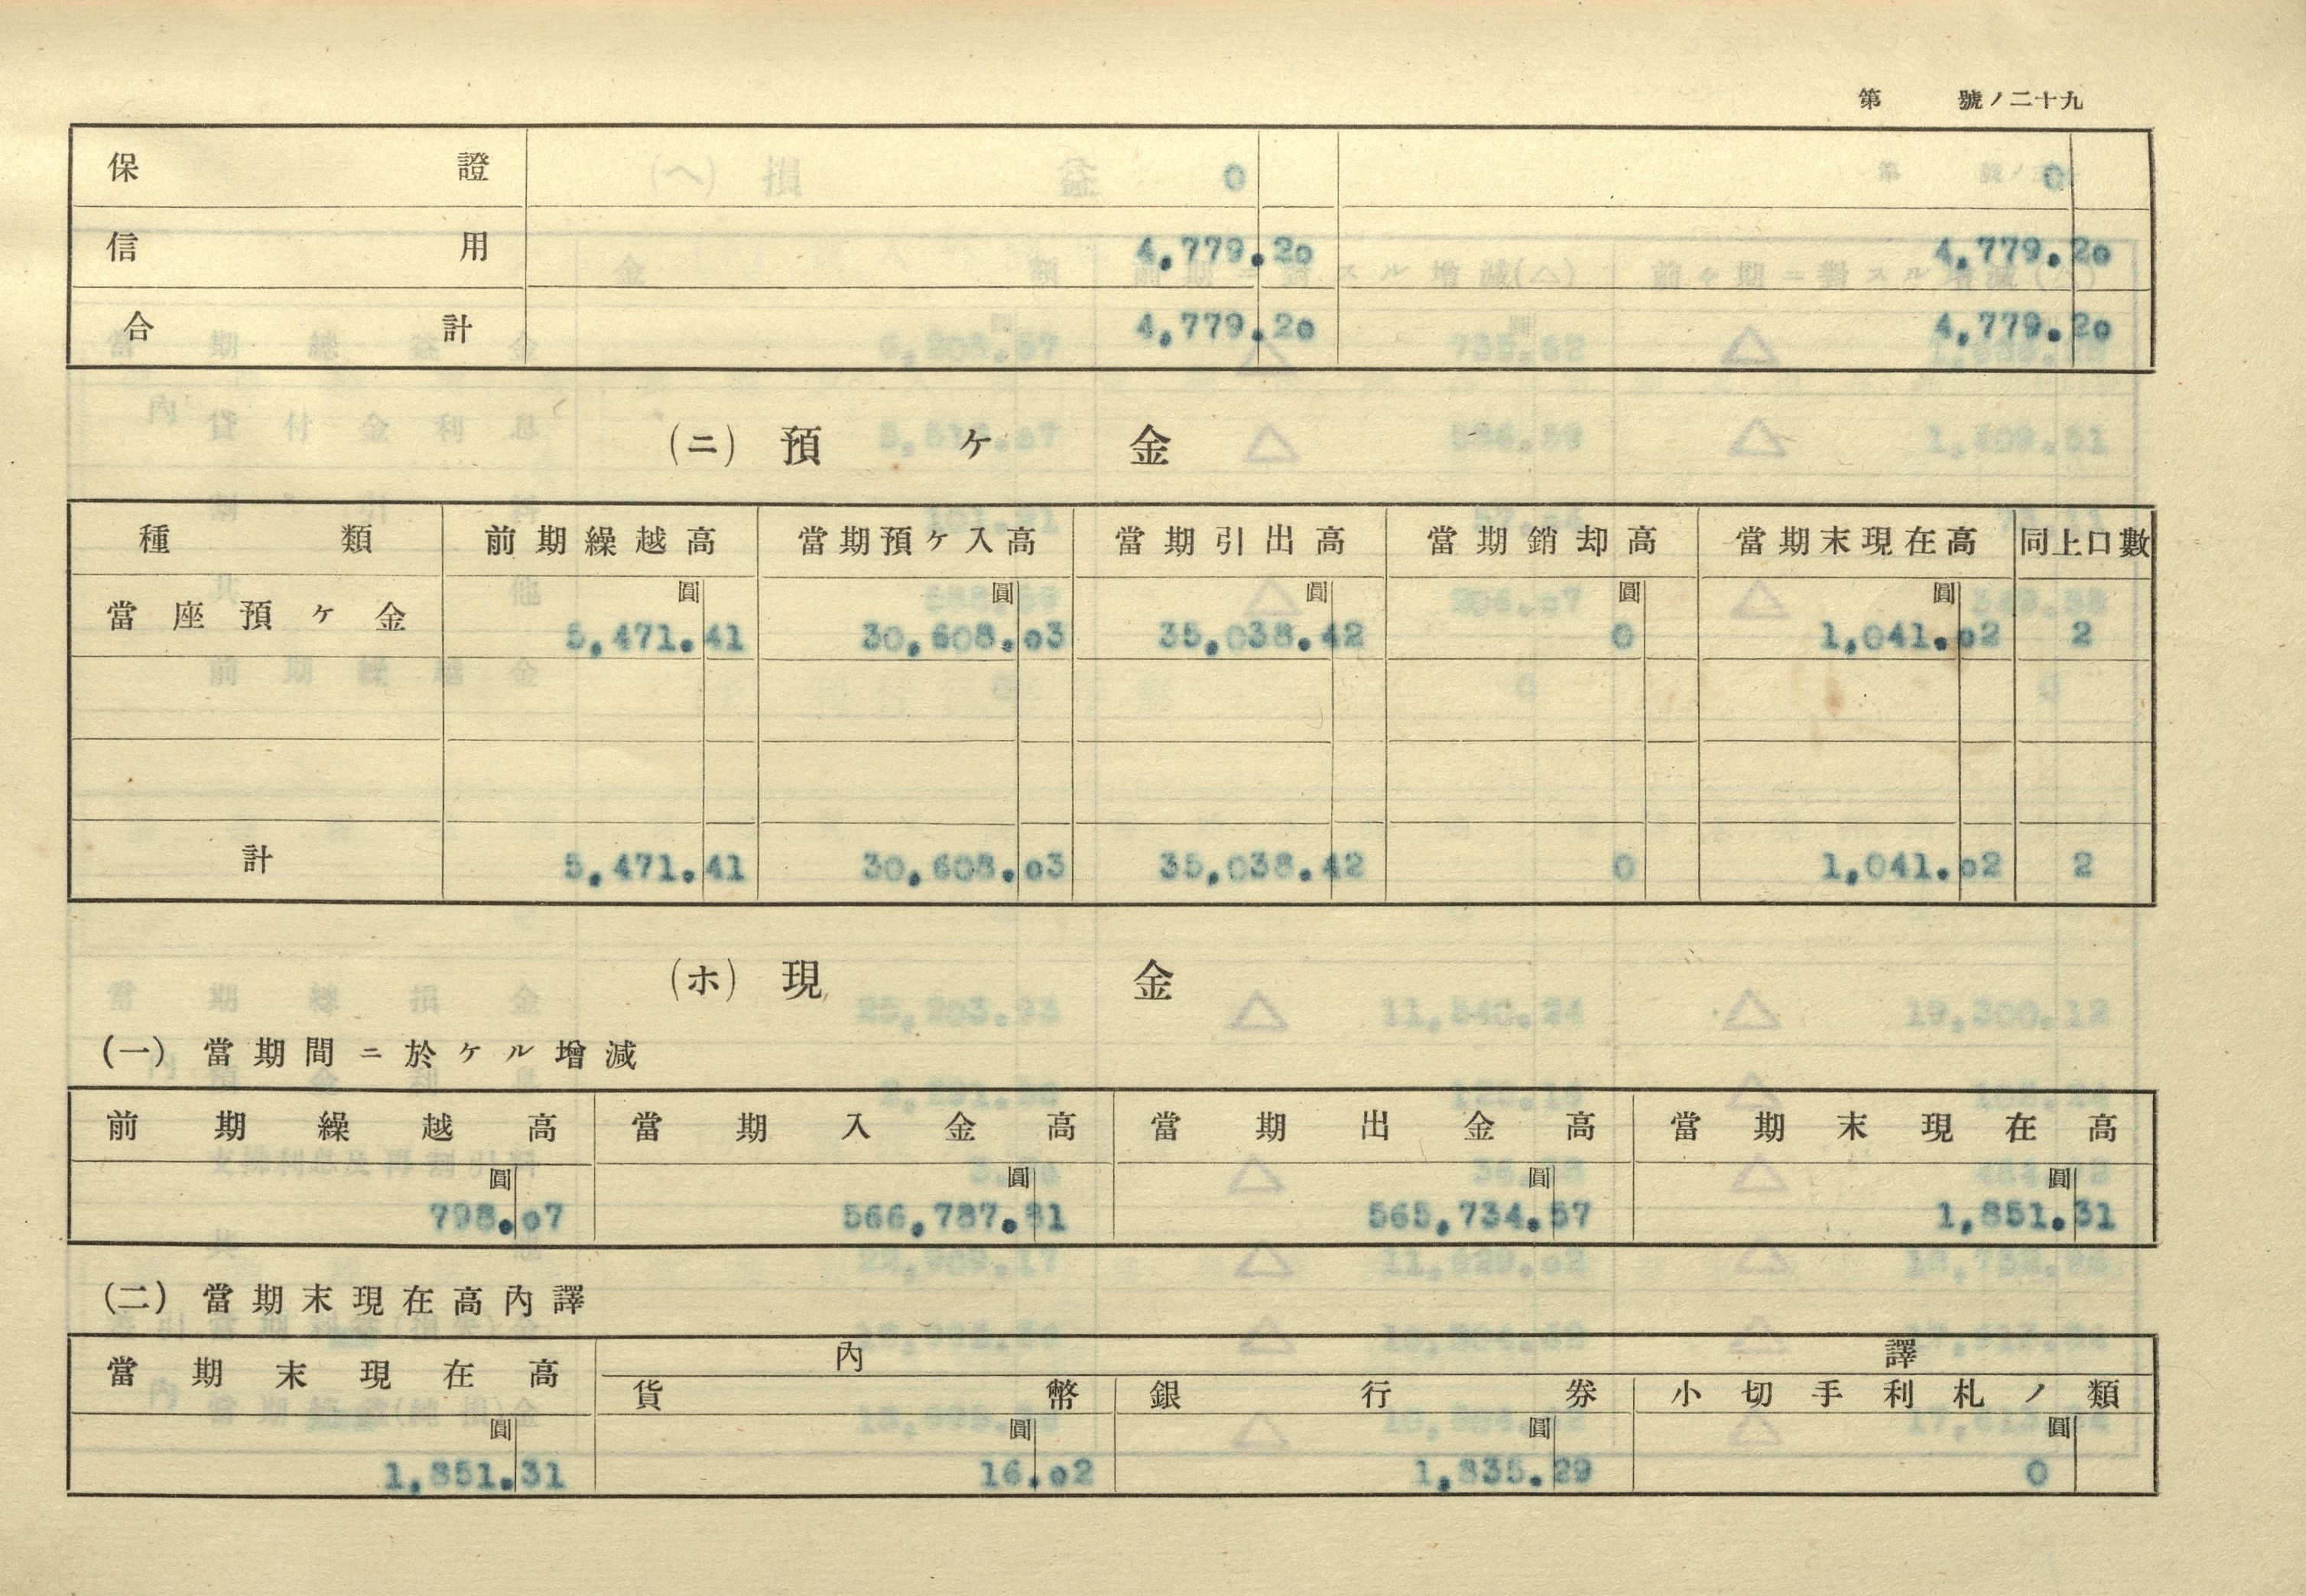 第　號ノ二十九
保證 0 0
信用 4,779.20 4,779.20
合計 4,779.20 4,779.20
(ニ) 預ヶ金
種類 前期繰越高 當期預ヶ入高 當期引出高 當期銷却高 當期末現在高 同上口數
圓 圓 圓 圓 圓
當座預ヶ金 5,471.41 30,608.03 35,038.42 0 1,041.02 2
計 5,471.41 30,608.03 35,038.42 0 1,041.02 2
(ホ) 現金
(一) 當期間ニ於ケル增減
前期繰越高 當期入金高 當期出金高 當期末現在高
圓 圓 圓 圓
798.07 566,787.81 565,734.57 1,851.31
(二) 當期末現在高內譯
當期末現在高 內譯
貨幣 銀行券 小切手利札ノ類
圓 圓 圓 圓
1,851.31 16.02 1,835.29 0